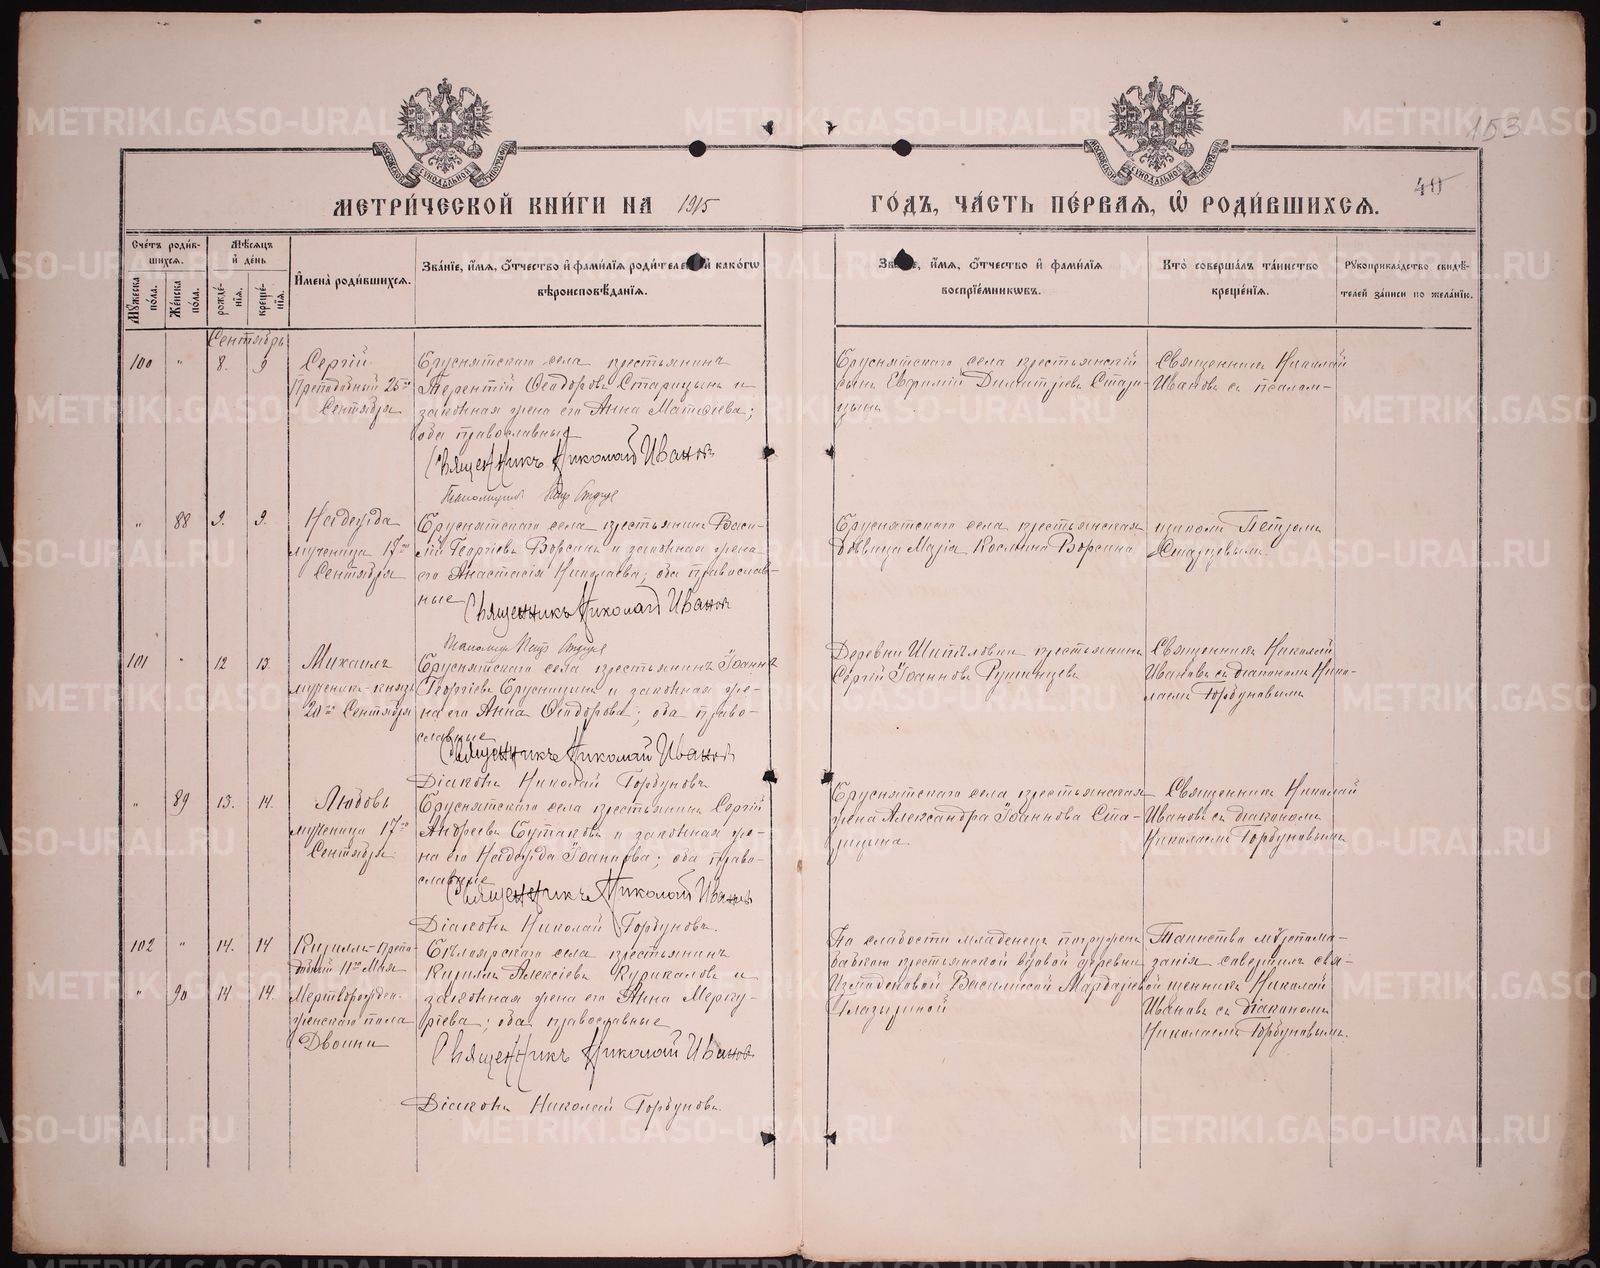 METRIKI.GASO-URAL.RU
153
40
МЕТРИ́ЧЕСКОЙ КНИ́ГИ НА 1915
ГО́ДЪ, ЧА́СТЬ ПЕ́РВАЯ, Ѿ РОДИ́ВШИХСЯ.
Сче́тъ роди́вшихся.
Мѣ́сяцъ и҆ де́нь
Му́жеска по́ла.
Же́нска по́ла.
рожде́нїѧ.
креще́нїѧ.
И҆мена̀ роди́вшихсѧ.
Зва́нїе, и҆́мѧ, ѻ҆́тчество и҆ фами́лїѧ роди́телей, и҆ како́гѡ
вѣроисповѣ́данїѧ.
Зва́нїе, и҆́мѧ, ѻ҆́тчество и҆ фами́лїѧ
воспрїе́мникѡвъ.
Кто̀ соверша́лъ та́инство
креще́нїѧ.
Рꙋкоприкла́дство свидѣ́-
телей за́писи по жела́нїю.
Сентябрь
100 " 8. 9
Сергій
Преподобный 25го
Сентября
Бруснятскаго села крестьянинъ
Терентій Ѳеодоровъ Старицынъ и
законная жена его Анна Матѳіева;
оба православные
Священникъ Николай Ивановъ
Бруснятскаго села крестьянскій
сынъ Евфимій Димитріевъ Стари-
цынъ
Священникъ Николай
Ивановъ съ псалом-
" 88 9. 9.
Надежда
мученица 17го
Сентября
Бруснятскаго села крестьянинъ Васи-
лій Георгіевъ Ворсинъ и законная жена
его Анастасія Николаева; оба православ-
ные
Священникъ Николай Ивановъ
Бруснятскаго села крестьянская
дѣвица Марія Космина Ворсина
щикомъ Петромъ
Старцевымъ
101 " 12 13.
Михаилъ
мученикъ-князь
20го Сентября
Бруснятскаго села крестьянинъ Іоаннъ
Георгіевъ Брусницинъ и законная же-
на его Анна Ѳеодорова; оба право-
славные
Священникъ Николай Ивановъ
Діаконъ Николай Горбуновъ
Деревни Шипѣловки крестьянинъ
Сергій Іоанновъ Румянцевъ
Священникъ Николай
Ивановъ съ діакономъ Нико-
лаемъ Горбуновымъ
" 89 13. 14.
Любовь
мученица 17го
Сентября
Бруснятскаго села крестьянинъ Сергій
Андреевъ Бутаковъ и законная же-
на его Надежда Іоаннова; оба право-
славные
Священникъ Николай Ивановъ
Діаконъ Николай Горбуновъ.
Бруснятскаго села крестьянская
жена Александра Іоаннова Ста-
рицына
Священникъ Николай
Ивановъ съ діакономъ
Николаемъ Горбуновымъ
102 " 14. 14
Кириллъ-Препо-
добный 11го Мая
Бѣлоярскаго села крестьянинъ
Кириллъ Алексіевъ Курикаловъ и
" 90 14 14.
Мертворожден.
женскаго пола
Двойни
законная жена его Анна Мерку-
ріева; оба православные
Священникъ Николай Ивановъ
Діаконъ Николай Горбуновъ.
По слабости младенецъ погруженъ
бабкою крестьянской вдовой деревни
Василисой
Глазыриной
Таинство мѵропома-
занія совершилъ свя-
щенникъ Николай
Ивановъ съ діакономъ
Николаемъ Горбуновымъ.